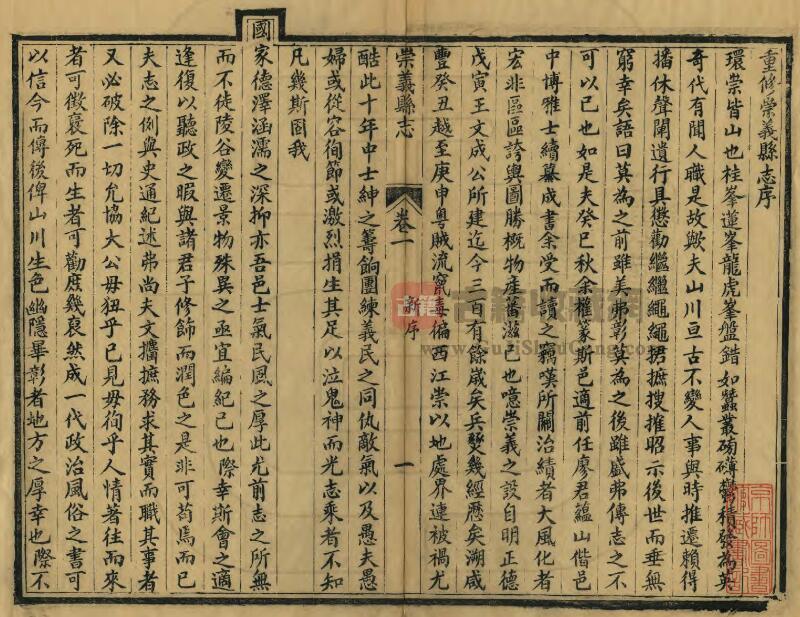 重修崇義縣志序
環崇皆山也桂峯蓮峯龍虎峯盤錯如蠶叢磅礡鬱積發為英
奇代有聞人職是故歟夫山川亘古不變人事與時推遷賴得
播休聲闡遺行具懲勸繼繼繩繩捃摭搜摧昭示後世而垂無
窮幸矣語曰莫為之前雖美弗彰莫為之後雖盛弗傳志之不
可以已也如是夫癸巳秋余權篆斯邑適前任廖君蘊山偕邑
中博雅士續纂成書余受而讀之竊嘆所關治績者大風化者
宏非區區誇輿圖勝概物產蕃滋已也噫崇義之設自明正德
戊寅王文成公所建迄今三百有餘歲矣兵燹幾經歷矣溯咸
豐癸丑越至庚申粵賊流竄毒徧西江崇以地處界連被禍尤
崇義縣志
卷一
新序
一
酷此十年中士紳之籌餉團練義民之同仇敵愾以及愚夫愚
婦或從容徇節或激烈捐生其足以泣鬼神而光志乘者不知
凡幾斯固我
國家德澤涵濡之深抑亦吾邑士氣民風之厚此尤前志之所無
而不徒陵谷變遷景物殊異之亟宜編紀已也際幸斯會之適
逢復以聽政之暇與諸君子修飾而潤色之是非可苟焉而已
夫志之例與史通紀述弗尚夫文擴摭務求其實而職其事者
又必破除一切允協大公毋狃乎已見毋徇乎人情著往而來
者可徵褒死而生者可勸庶幾裒然成一代政治風俗之書可
以信今而傳後俾山川生色幽隱畢彰者地方之厚幸也際不
古籍
古籍書閣網
京師圖書